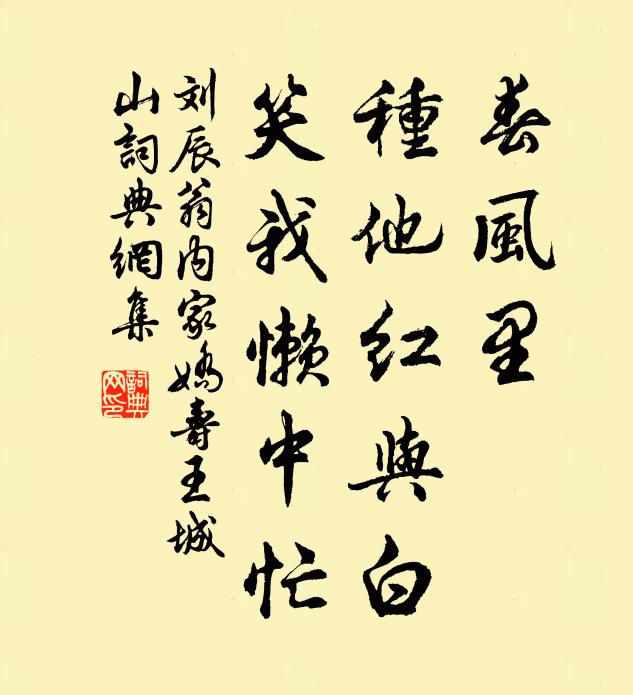 春風里
種他紅與白
笑我懶中忙
刘辰翁内家嬌壽王城
山詞典網集
詞典
网印